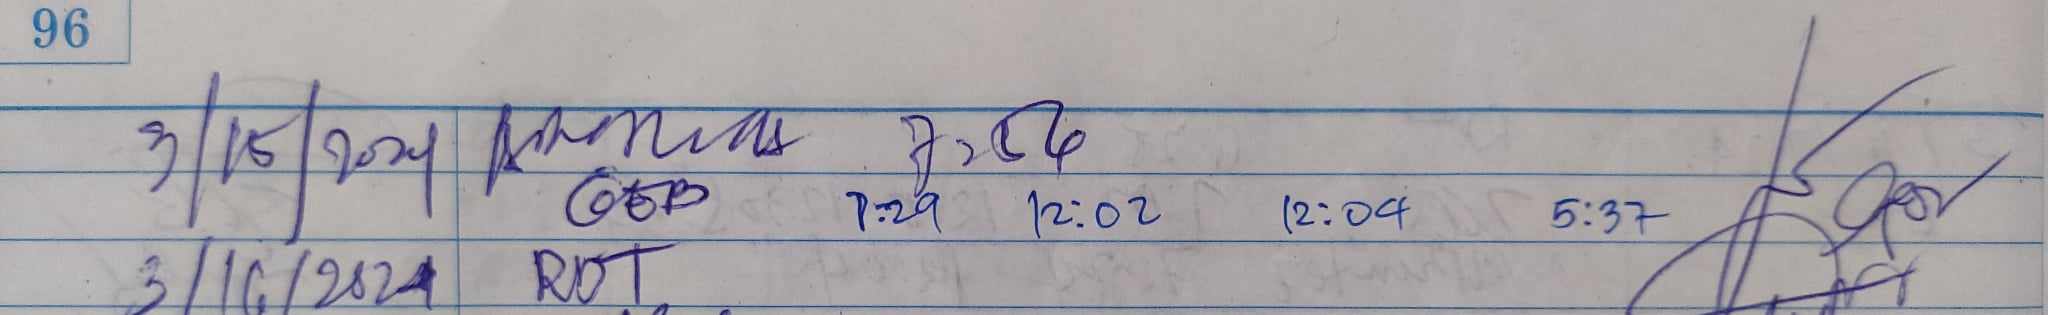 96
3/15/2024 7:56
GEB 7:29 12:02 12:04 5:37
3/16/2024 RDT